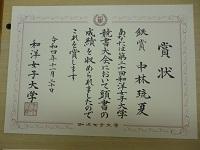 賞状
銀賞 中林琉夏
あなたは第二十回和洋女子大学
競書大会において頭書の
成績を収められましたので
これを賞します
令和四年十一月二十日
和洋女子大学